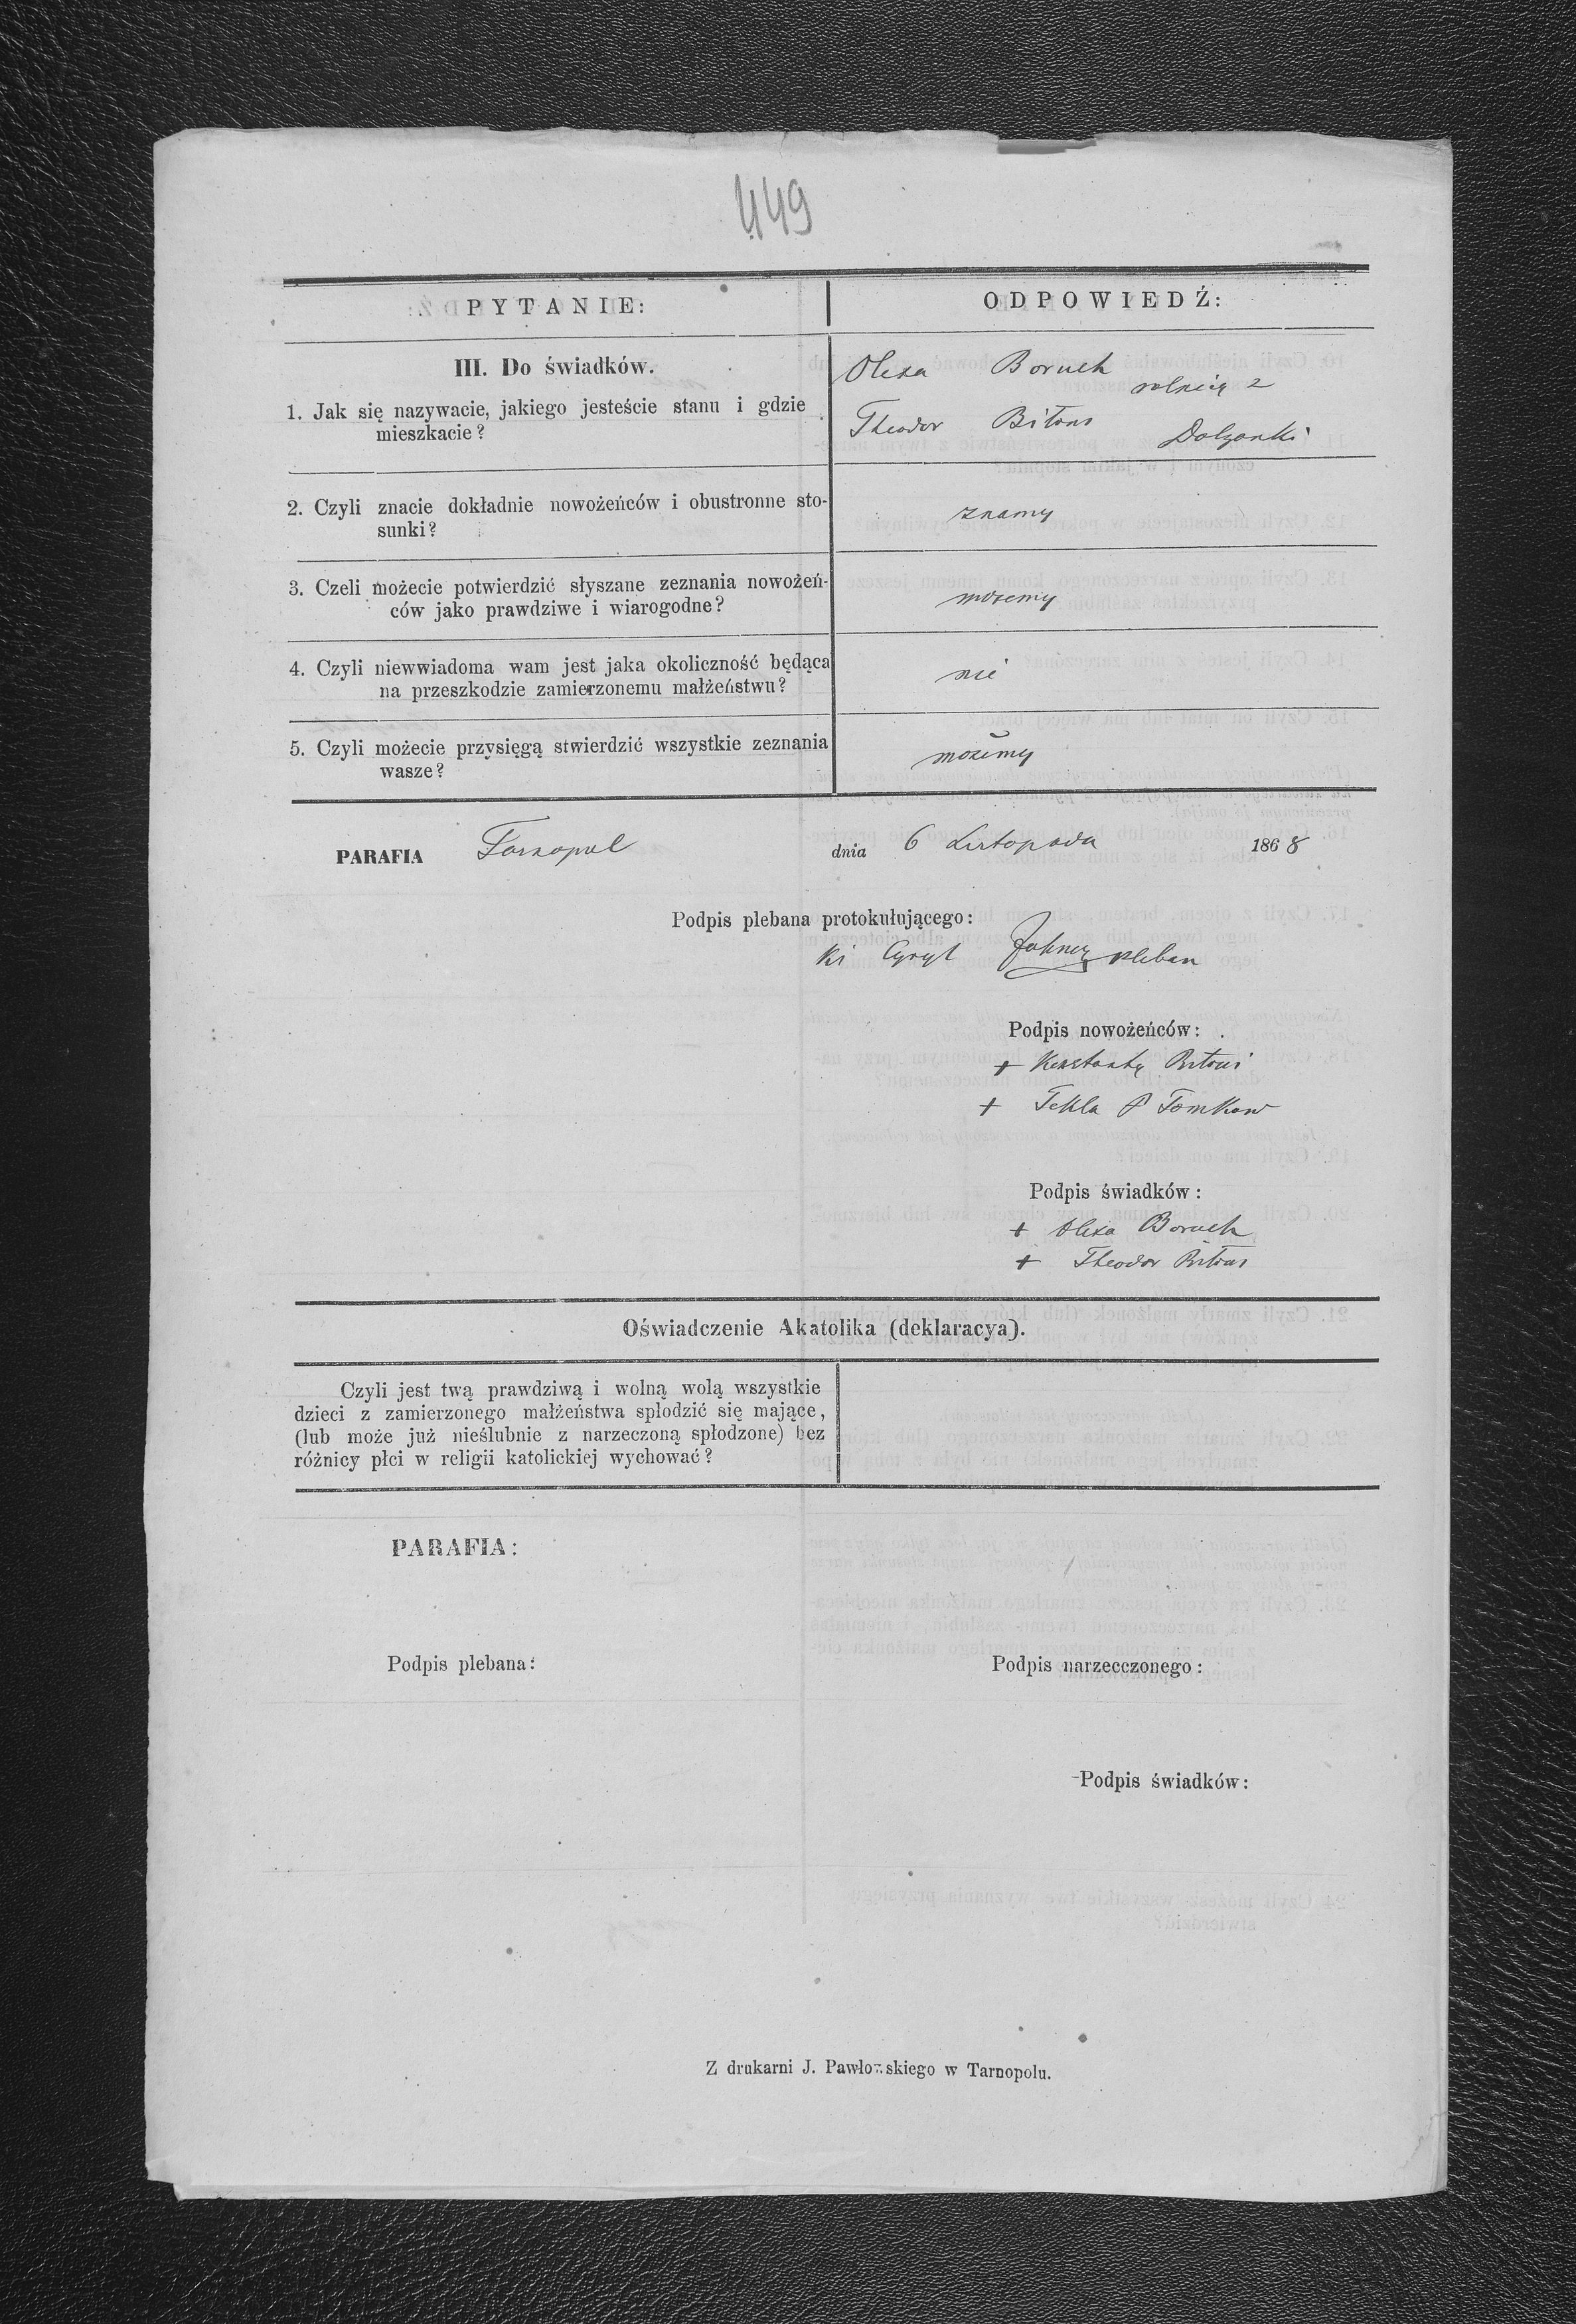 449
PYTANIE:
ODPOWIEDŹ:
III. Do świadków.
1. Jak się nazywacie, jakiego jesteście stanu i gdzie
mieszkacie?
Olexa Boruch
rolnicy z
Theodor Bitous
Dolżanki
2. Czyli znacie dokładnie nowożeńców i obustronne sto-
sunki?
znamy
3. Czeli możecie potwierdzić słyszane zeznania nowożeń-
ców jako prawdziwe i wiarogodne?
możemy
4. Czyli niewwiadoma wam jest jaka okoliczność będąca
na przeszkodzie zamierzonemu małżeństwu?
nie
5. Czyli możecie przysięgą stwierdzić wszystkie zeznania
wasze?
możemy
PARAFIA Tarnopol dnia 6 Listopada 1868
Podpis plebana protokułującego:
Cyryl pleban
Podpis nowożeńców:
+ Konstanty
+ Tekla Tomkow
Podpis świadków:
+ Olexa Boruch
+ Theodor Bitous
Oświadczenie Akatolika (deklaracya).
Czyli jest twą prawdziwą i wolną wolą wszystkie
dzieci z zamierzonego małżeństwa spłodzić się mające,
(lub może już nieślubnie z narzeczoną spłodzone) bez
różnicy płci w religii katolickiej wychować?
PARAFIA:
Podpis plebana:
Podpis narzecczonego:
Podpis świadków:
Z drukarni J. Pawłowskiego w Tarnopolu.